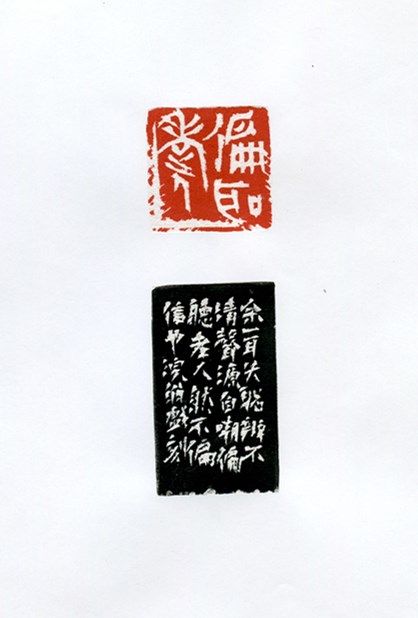 偏聽
老人
余一耳失聪辨不
清聲源自嘲偏
聽老人然不偏
信也浣翁戲刻